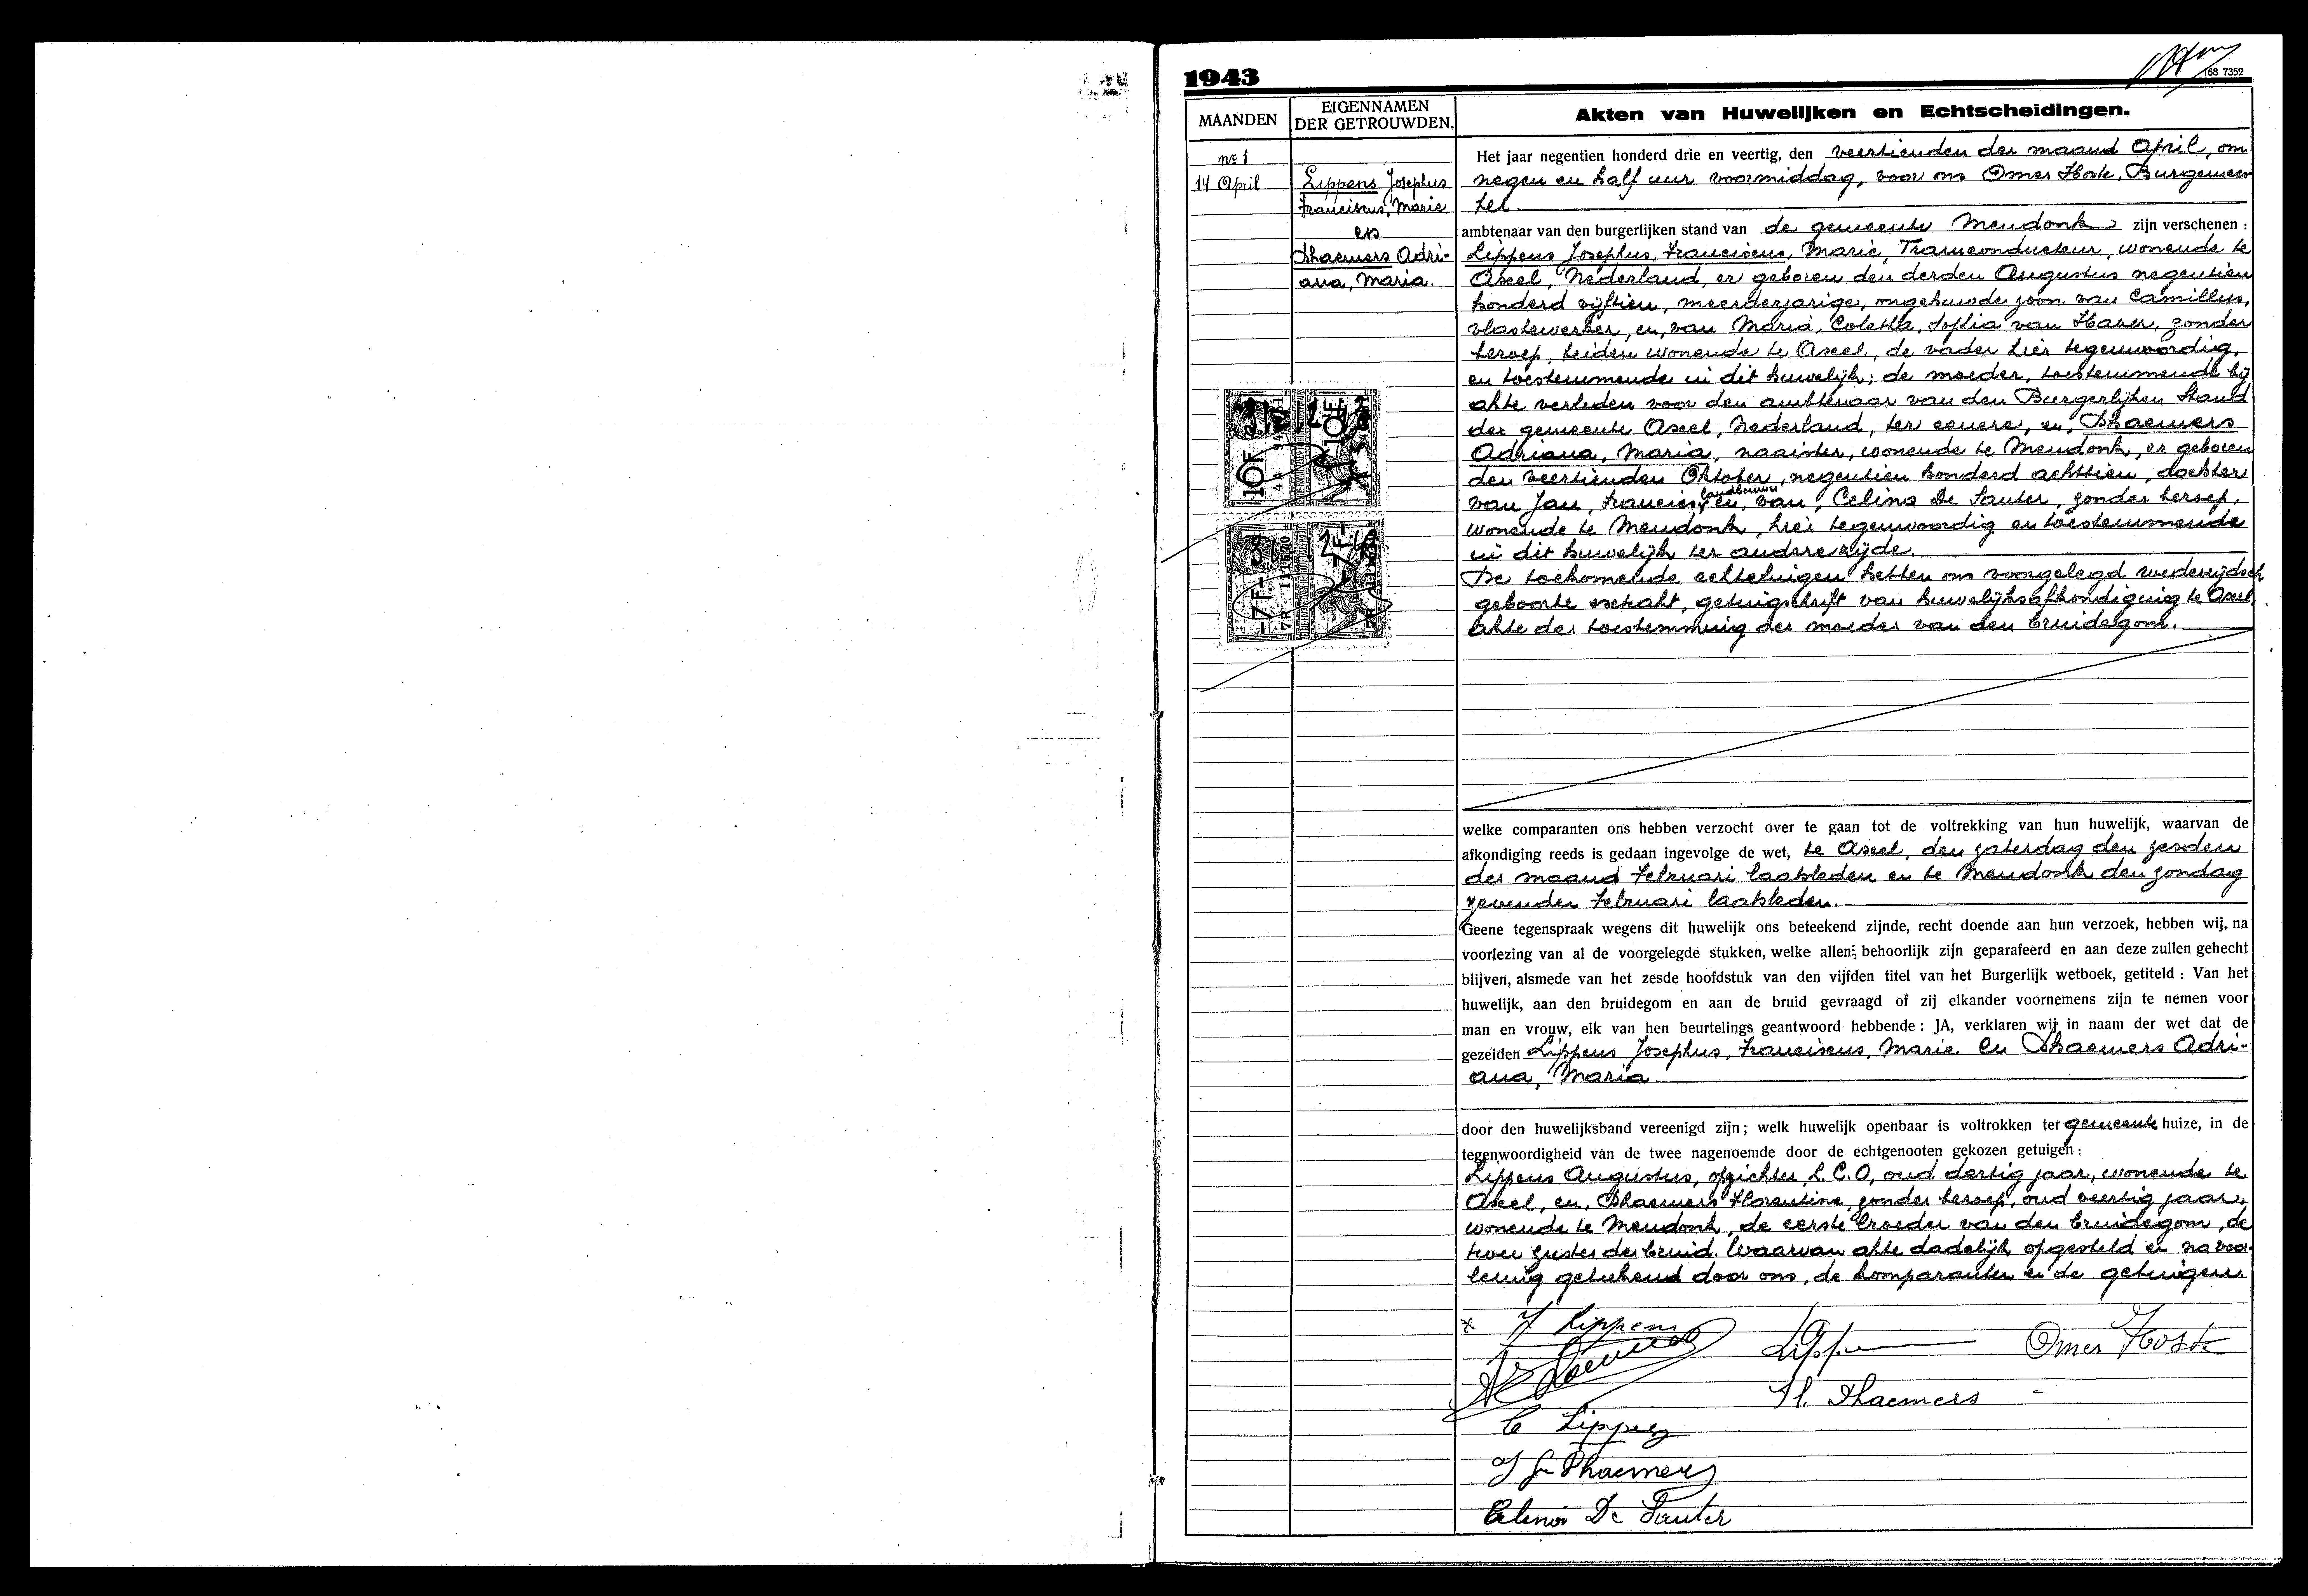 1943
168 7352
MAANDEN
EIGENNAMEN
DER GETROUWDEN.
Akten van Huwelijken en Echtscheidingen.
nº 1
14 April
Lippens Josephus
Franciscus, Marie
en
Dhaemers Adri-
ana, Maria.
10F
10F
7F
7F
Het jaar negentien honderd drie en veertig, den veertienden der maand April, om
negen en half uur voormiddag, voor ons Omer Hoste, Burgemees-
ter
ambtenaar van den burgerlijken stand van de gemeente Mendonk zijn verschenen :
Lippens Josephus, Franciscus, Marie, Tramconducteur, wonende te
Axel, Nederland, er geboren den derden Augustus negentien
honderd vijftien, meerderjarige, ongehuwde zoon van Camillus,
vlasbewerker, en, van Maria, Coletha, Sophia van Haver, zonder
beroep, beiden wonende te Axel, de vader hier tegenwoordig,
en toestemmende in dit huwelijk; de moeder, toestemmende bij
akte verleden voor den ambtenaar van den Burgerlijken Stand
der gemeente Axel, Nederland, ter eenere, en, Dhaemers
Adriana, Maria, naaister, wonende te Mendonk, er geboren
den veertienden Oktober, negentien honderd achttien, dochter
van Jan, Francies, landbouwer en, van, Celina De Sauter, zonder beroep,
wonende te Mendonk, hier tegenwoordig en toestemmende
in dit huwelijk ter andere zijde.
De toekomende echtetuigen hebben ons voorgelegd wederzijdsch
geboorte extrakt, getuigschrift van huwelijksafkondiging te Axel,
akte der toestemming der moeder van den bruidegom.
welke comparanten ons hebben verzocht over te gaan tot de voltrekking van hun huwelijk, waarvan de
afkondiging reeds is gedaan ingevolge de wet, te Axel, den zaterdag den zesden
der maand Februari laatsleden en te Mendonk den zondag
zevenden Februari laatsleden.
Geene tegenspraak wegens dit huwelijk ons beteekend zijnde, recht doende aan hun verzoek, hebben wij, na
voorlezing van al de voorgelegde stukken, welke allen; behoorlijk zijn geparafeerd en aan deze zullen gehecht
blijven, alsmede van het zesde hoofdstuk van den vijfden titel van het Burgerlijk wetboek, getiteld : Van het
huwelijk, aan den bruidegom en aan de bruid gevraagd of zij elkander voornemens zijn te nemen voor
man en vrouw, elk van hen beurtelings geantwoord hebbende : JA, verklaren wij in naam der wet dat de
gezeiden Lippens Josephus, Franciscus, Marie en Dhaemers Adri-
ana, Maria
door den huwelijksband vereenigd zijn ; welk huwelijk openbaar is voltrokken ter gemeente huize, in de
tegenwoordigheid van de twee nagenoemde door de echtgenooten gekozen getuigen :
Lippens Augustus, opzichter L.C.O, oud dertig jaar, wonende te
Axel, en, Dhaemers Florentine, zonder beroep, oud veertig jaar,
wonende te Mendonk, de eerste broeder van den bruidegom, de
twee zuster der bruid. Waarvan akte dadelijk opgesteld en na voor-
lezing geteekend door ons, de komparanten en de getuigen.
x J Lippens
Omer Hoste
Fl. Dhaemers
C Lippens
J Fr Dhaemers
Celina De Sauter